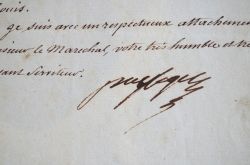 ois.
je suis avec un respectueux attachement
sieur le Marechal, votre très humble et
sant Serviteur.